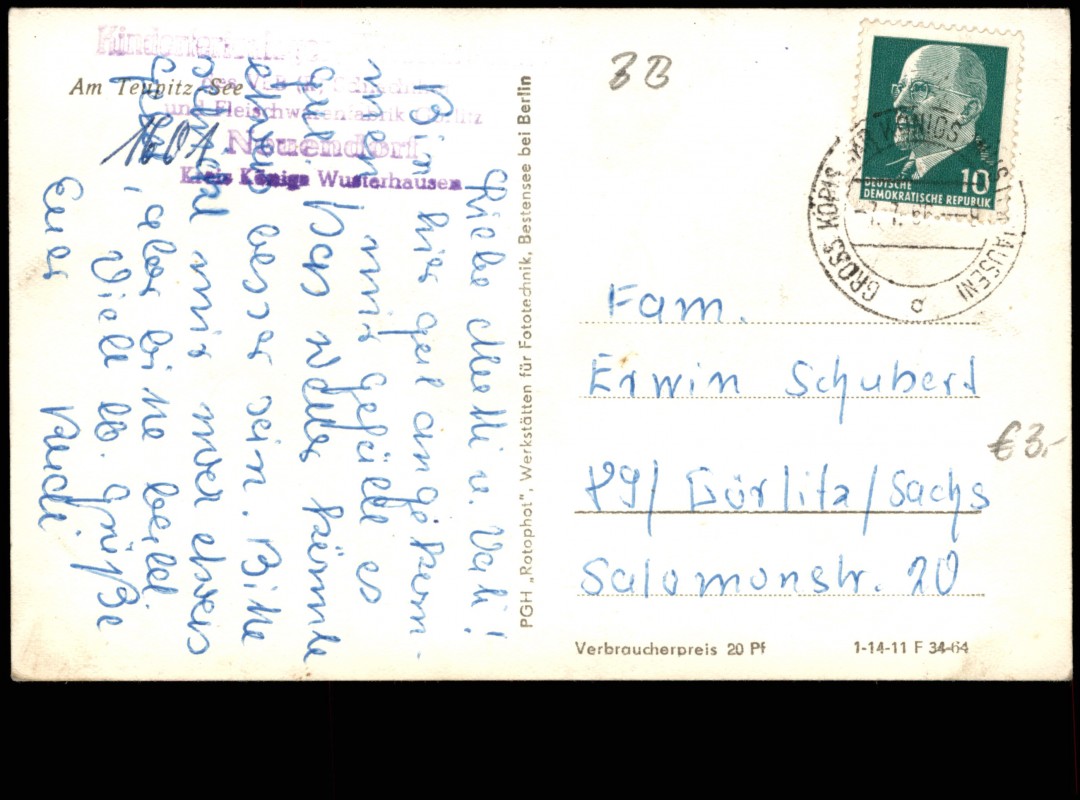 Am Teupitz See
und Fleischwarenfabrik Görlitz
Neuendorf
Kreis Königs Wusterhausen
1601
Liebe Mutti u. Vati!
Bin hier gut angekom-
men, mir gefällt es
gut. Das Wetter könnte
etwas besser sein. Bitte
schickt mir mal etwas
Geld, aber bitte bald.
Viele lb. Grüße
Euer Rudi
PGH „Rotophot", Werkstätten für Fototechnik, Bestensee bei Berlin
BB
10
DEUTSCHE
DEMOKRATISCHE REPUBLIK
GROSS KÖRIS
Fam.
Erwin Schubert
89/ Görlitz/Sachs
Salomonstr. 20
€3.-
Verbraucherpreis 20 Pf
1-14-11 F 34-64